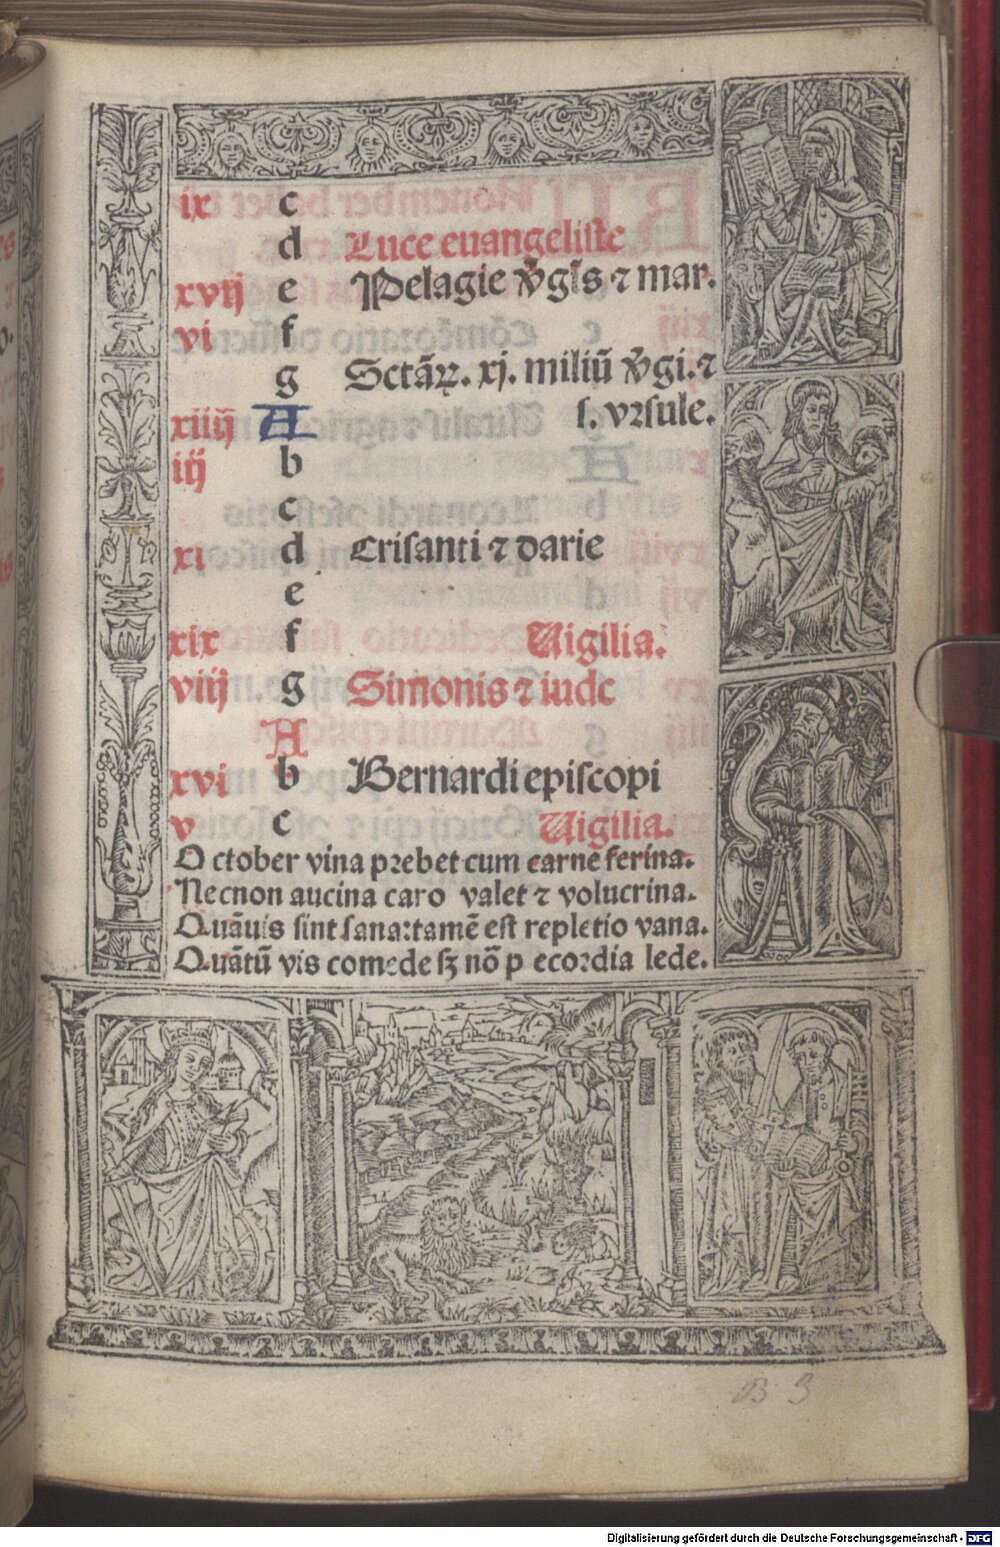 ix c
d Luce euangeliste
xvij e Pelagie v̄gīs ⁊ mar.
vi f
g Sctāꝝ. xj. miliū v̄gi. ⁊
xiiij A s. vrsule.
iij b
c
xi d Crisanti ⁊ darie
e
xix f Uigilia.
viij g Simonis ⁊ iude
A
xvi b Bernardi episcopi
v c Uigilia.
October vina prebet cum carne ferina.
Necnon aucina caro valet ⁊ volucrina.
Quāuis sint sana: tamē est repletio vana.
Quātū vis comede sꝫ nō p ecordia lede.
B 3
Digitalisierung gefördert durch die Deutsche Forschungsgemeinschaft - DFG